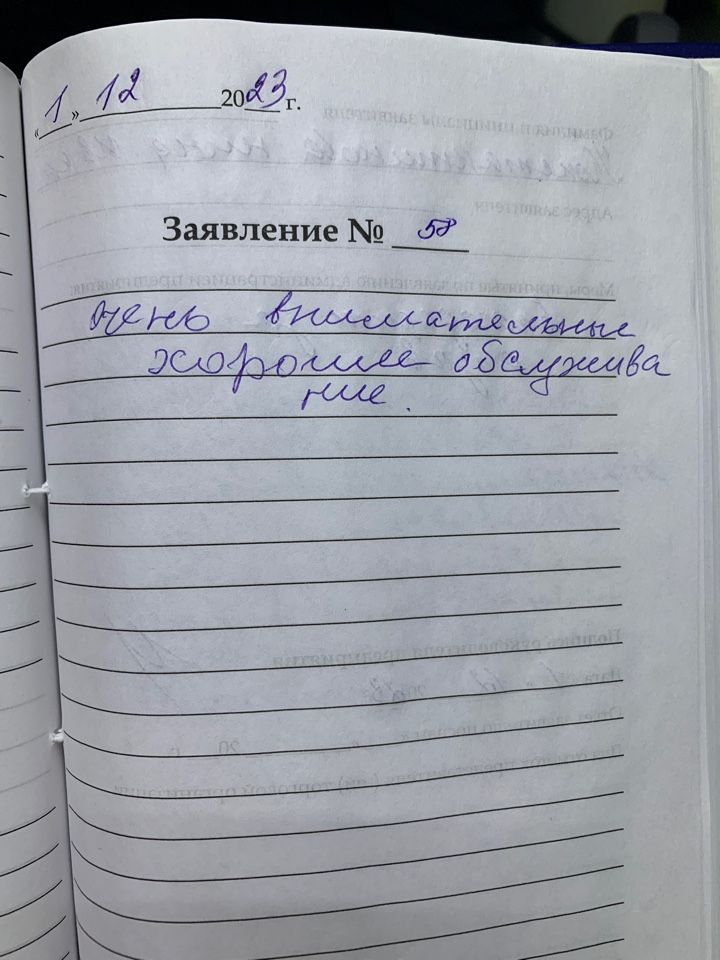 « 1 » 12 2023 г.
Заявление № 58
очень внимательные
хорошее обслужива
ние.